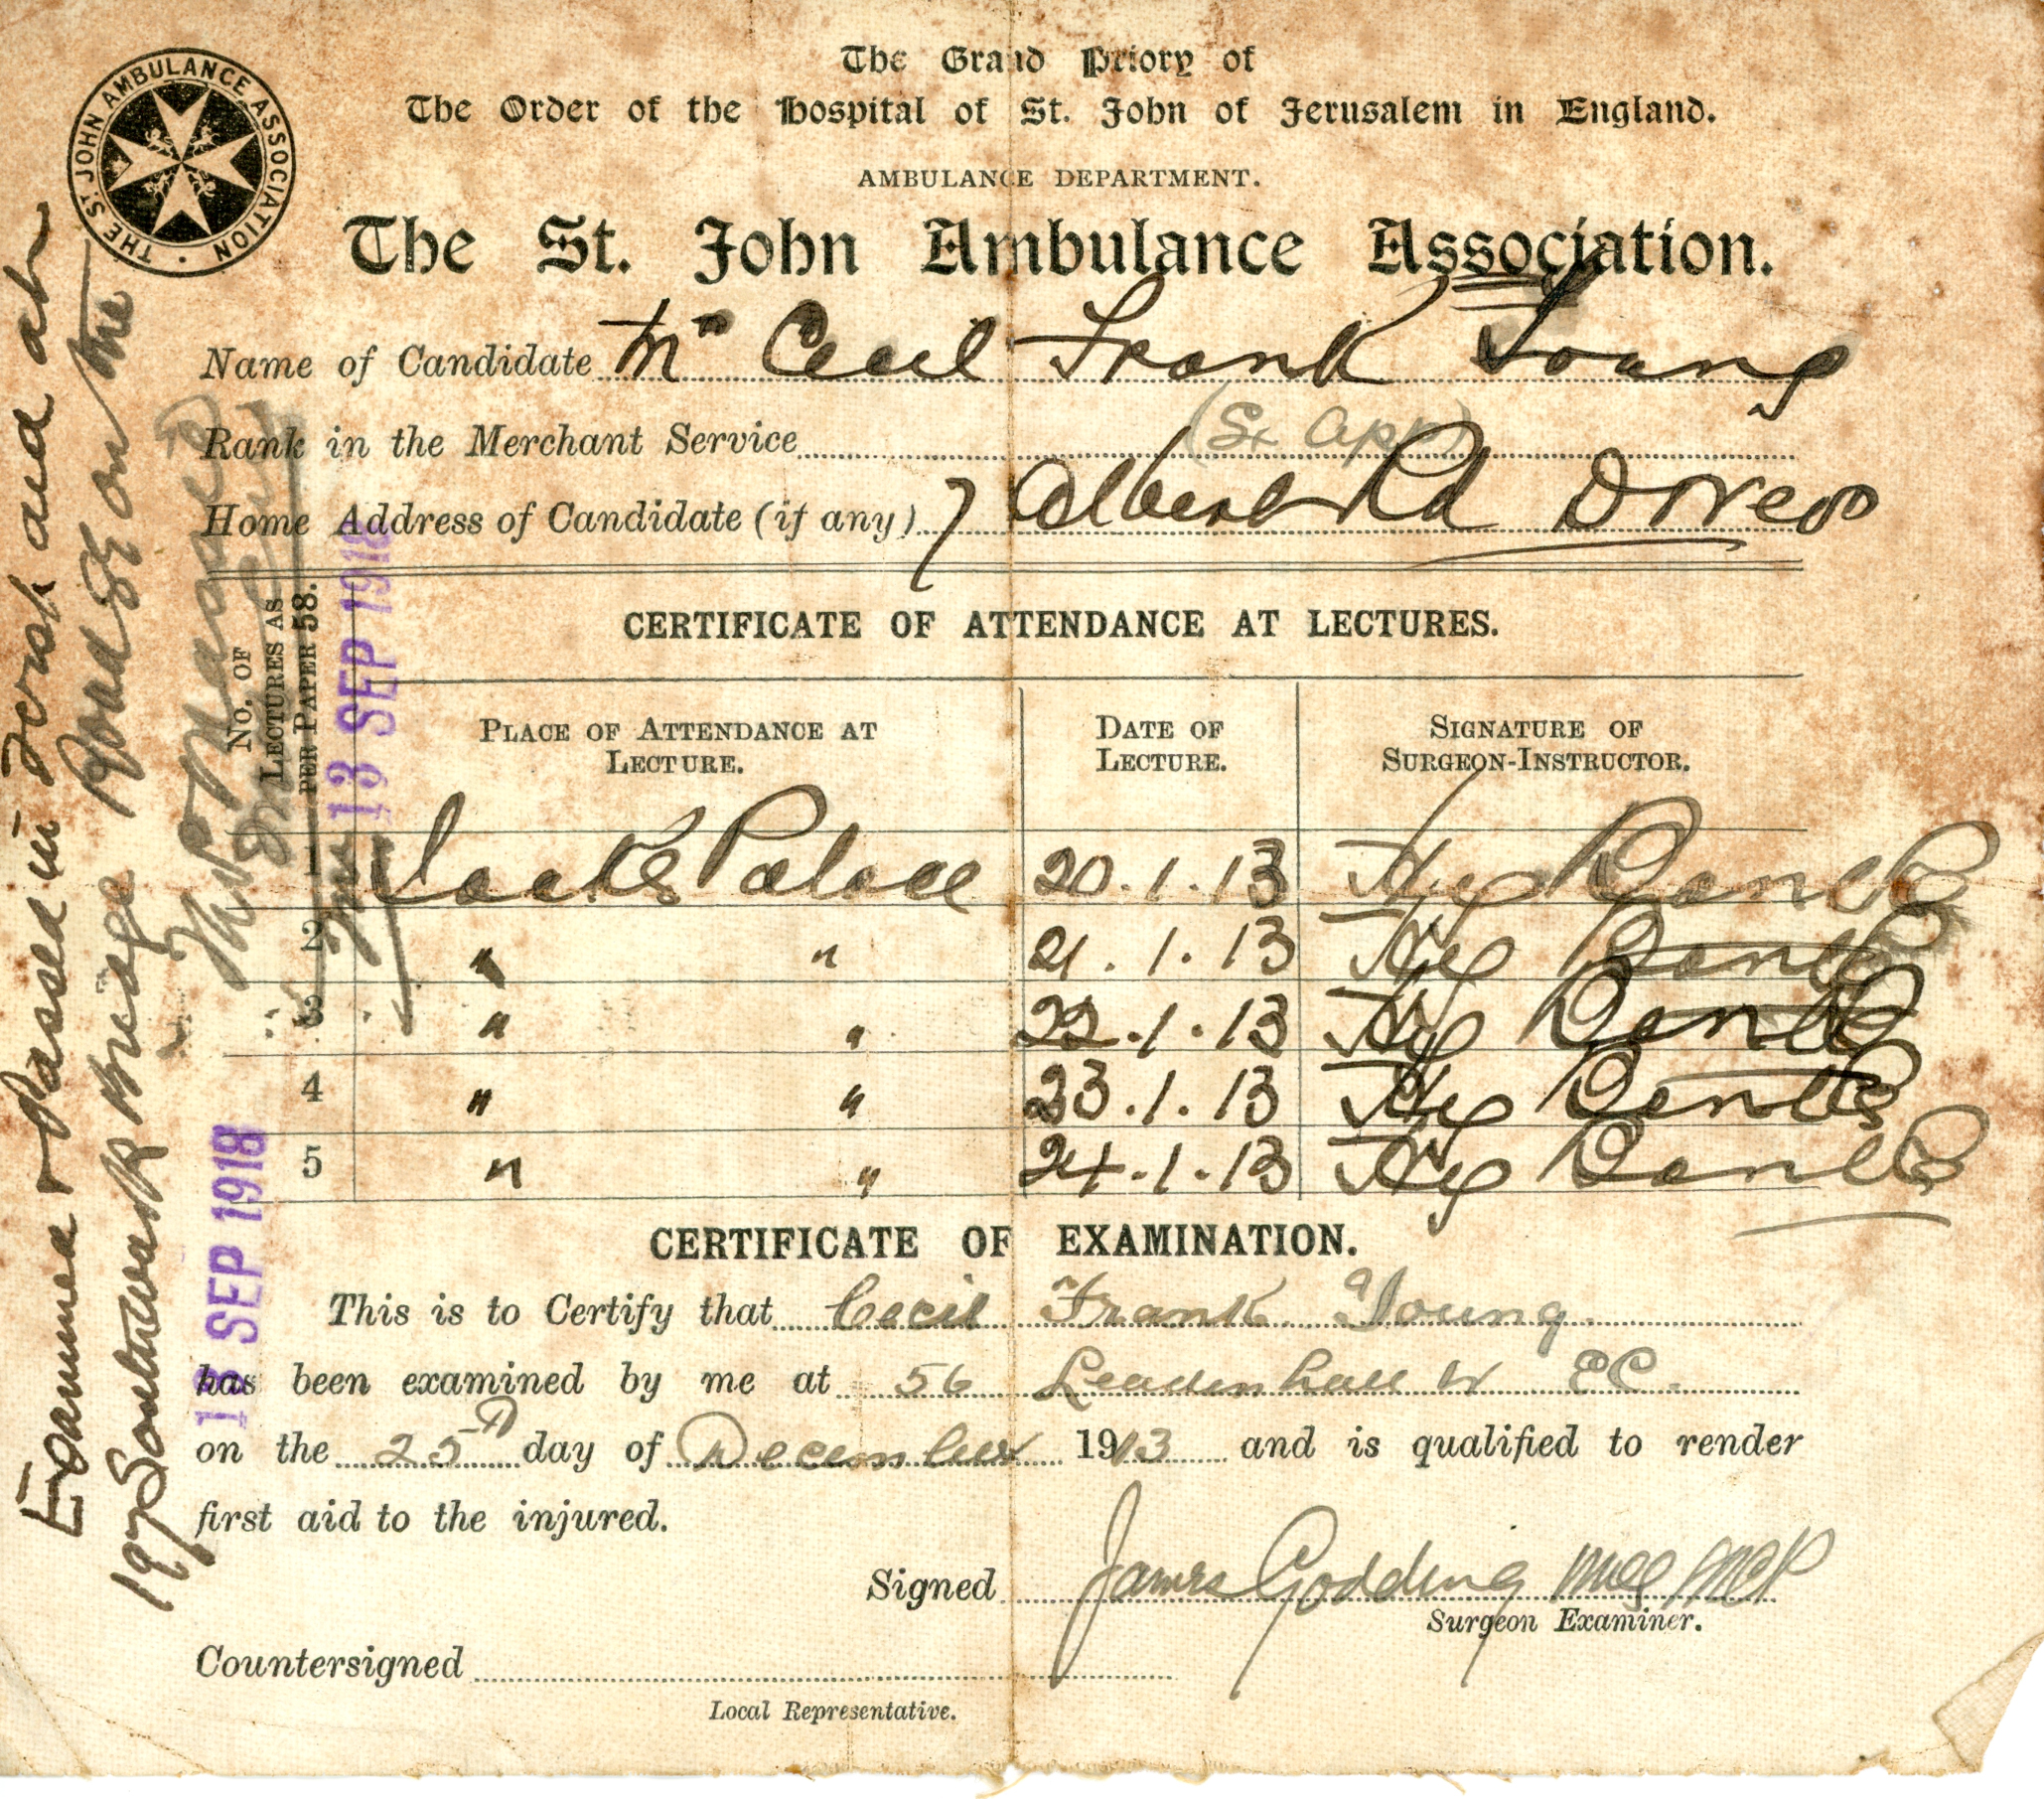 THE ST. JOHN AMBULANCE ASSOCIATION
The Grand Priory of
The Order of the Hospital of St. John of Jerusalem in England.
AMBULANCE DEPARTMENT.
The St. John Ambulance Association.
Name of Candidate Mr Cecil Frank Young
Rank in the Merchant Service (Sx App)
Home Address of Candidate (if any) 7 Albert Rd Dover
CERTIFICATE OF ATTENDANCE AT LECTURES.
No. OF LECTURES AS PER PAPER 58.
PLACE OF ATTENDANCE AT LECTURE.
DATE OF LECTURE.
SIGNATURE OF SURGEON-INSTRUCTOR.
1 Jack's Palace 20.1.13 Hy
2 " " 21.1.13 Hy
3 " " 22.1.13 Hy
4 " " 23.1.13 Hy
5 " " 24.1.13 Hy
CERTIFICATE OF EXAMINATION.
This is to Certify that Cecil Frank Young
has been examined by me at 56 Leadenhall St EC.
on the 25th day of December 1913 and is qualified to render
first aid to the injured.
Signed James Godding
Surgeon Examiner.
Countersigned
Local Representative.
Examined & Passed in First aid at
197 Southwark Bridge Road SE on the
13 SEP 1918
13 SEP 1918